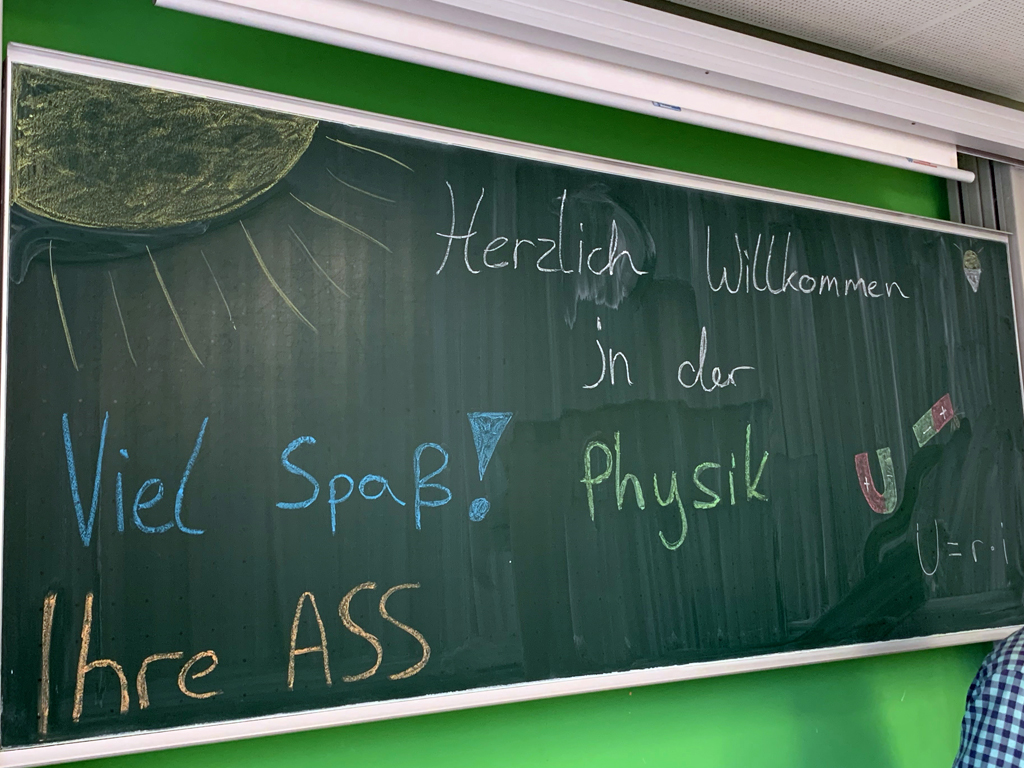 Herzlich Willkommen
in der
Physik
Viel Spaß!
U = r · i
Ihre ASS
+
+